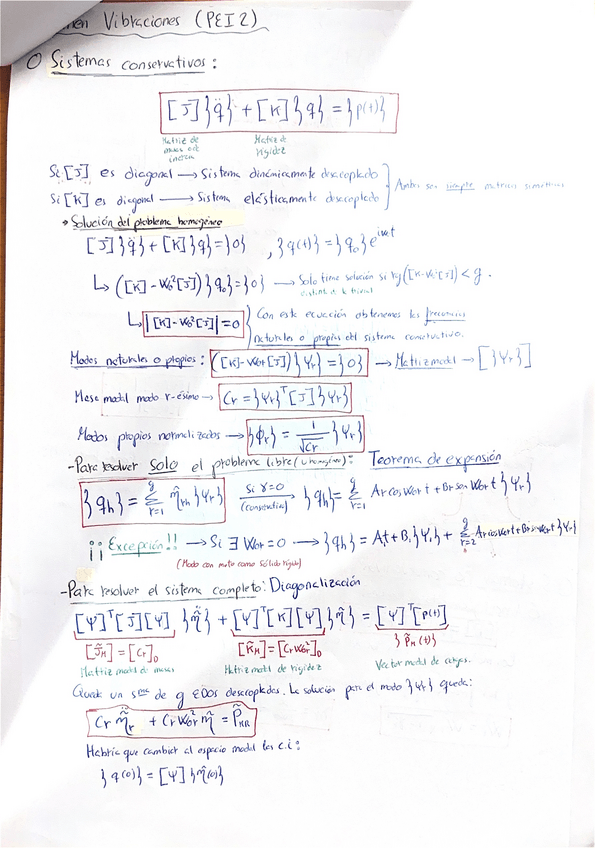 men Vibraciones (PEI2)
○ Sistemas conservativos:
[J]{q̈} + [K]{q} = {p(t)}
Matriz de masas o de inercia   Matriz de rigidez
Si [J] es diagonal → Sistema dinámicamente desacoplado
Si [K] es diagonal → Sistema elásticamente desacoplado } Ambas son siempre matrices simétricas
• Solución del problema homogéneo
[J]{q̈} + [K]{q} = {0} , {q(t)} = {q₀}e^{iω₀t}
↳ ([K] - ω₀²[J]){q₀} = {0} → Solo tiene solución si rg([K] - ω₀²[J]) < g.
distinta de la trivial
↳ |[K] - ω₀²[J]| = 0 } Con esta ecuación obtenemos las frecuencias
naturales o propias del sistema conservativo.
Modos naturales o propios: ([K] - ω₀r²[J]){Ψr} = {0} → Matriz modal → [{Ψr}]
Masa modal modo r-ésimo → Cr = {Ψr}ᵀ[J]{Ψr}
Modos propios normalizados → {Φr} = 1/√Cr {Ψr}
- Para resolver solo el problema libre (u homogéneo): Teorema de expansión
{qh} = Σ_{r=1}^{g} η̂rh {Ψr}   Si γ=0 (conservativo) → {qh} = Σ_{r=1}^{g} Ar cos ω₀r t + Br sen ω₀r t {Ψr}
¡¡ Excepción!! → Si ∃ ω₀r = 0 → {qh} = A₁t + B₁{Ψ₁} + Σ_{r=2}^{g} Ar cos ω₀r t + Br sen ω₀r t {Ψr}
(Modo con moto como sólido rígido)
- Para resolver el sistema completo: Diagonalización
[Ψ]ᵀ[J][Ψ] {η̈} + [Ψ]ᵀ[K][Ψ]{η̂} = [Ψ]ᵀ[p(t)]
[J̃M] = [Cr]D   [K̃M] = [Cr ω₀r²]D   {p̃M(t)}
Matriz modal de masas   Matriz modal de rigidez   Vector modal de cargas.
Queda un sma de g EDOs desacopladas. La solución para el modo {Ψr} queda:
Cr η̈r + Cr ω₀r² η̂ = P̃MR
Habría que cambiar al espacio modal las c.i:
{q(0)} = [Ψ]{η̂(0)}